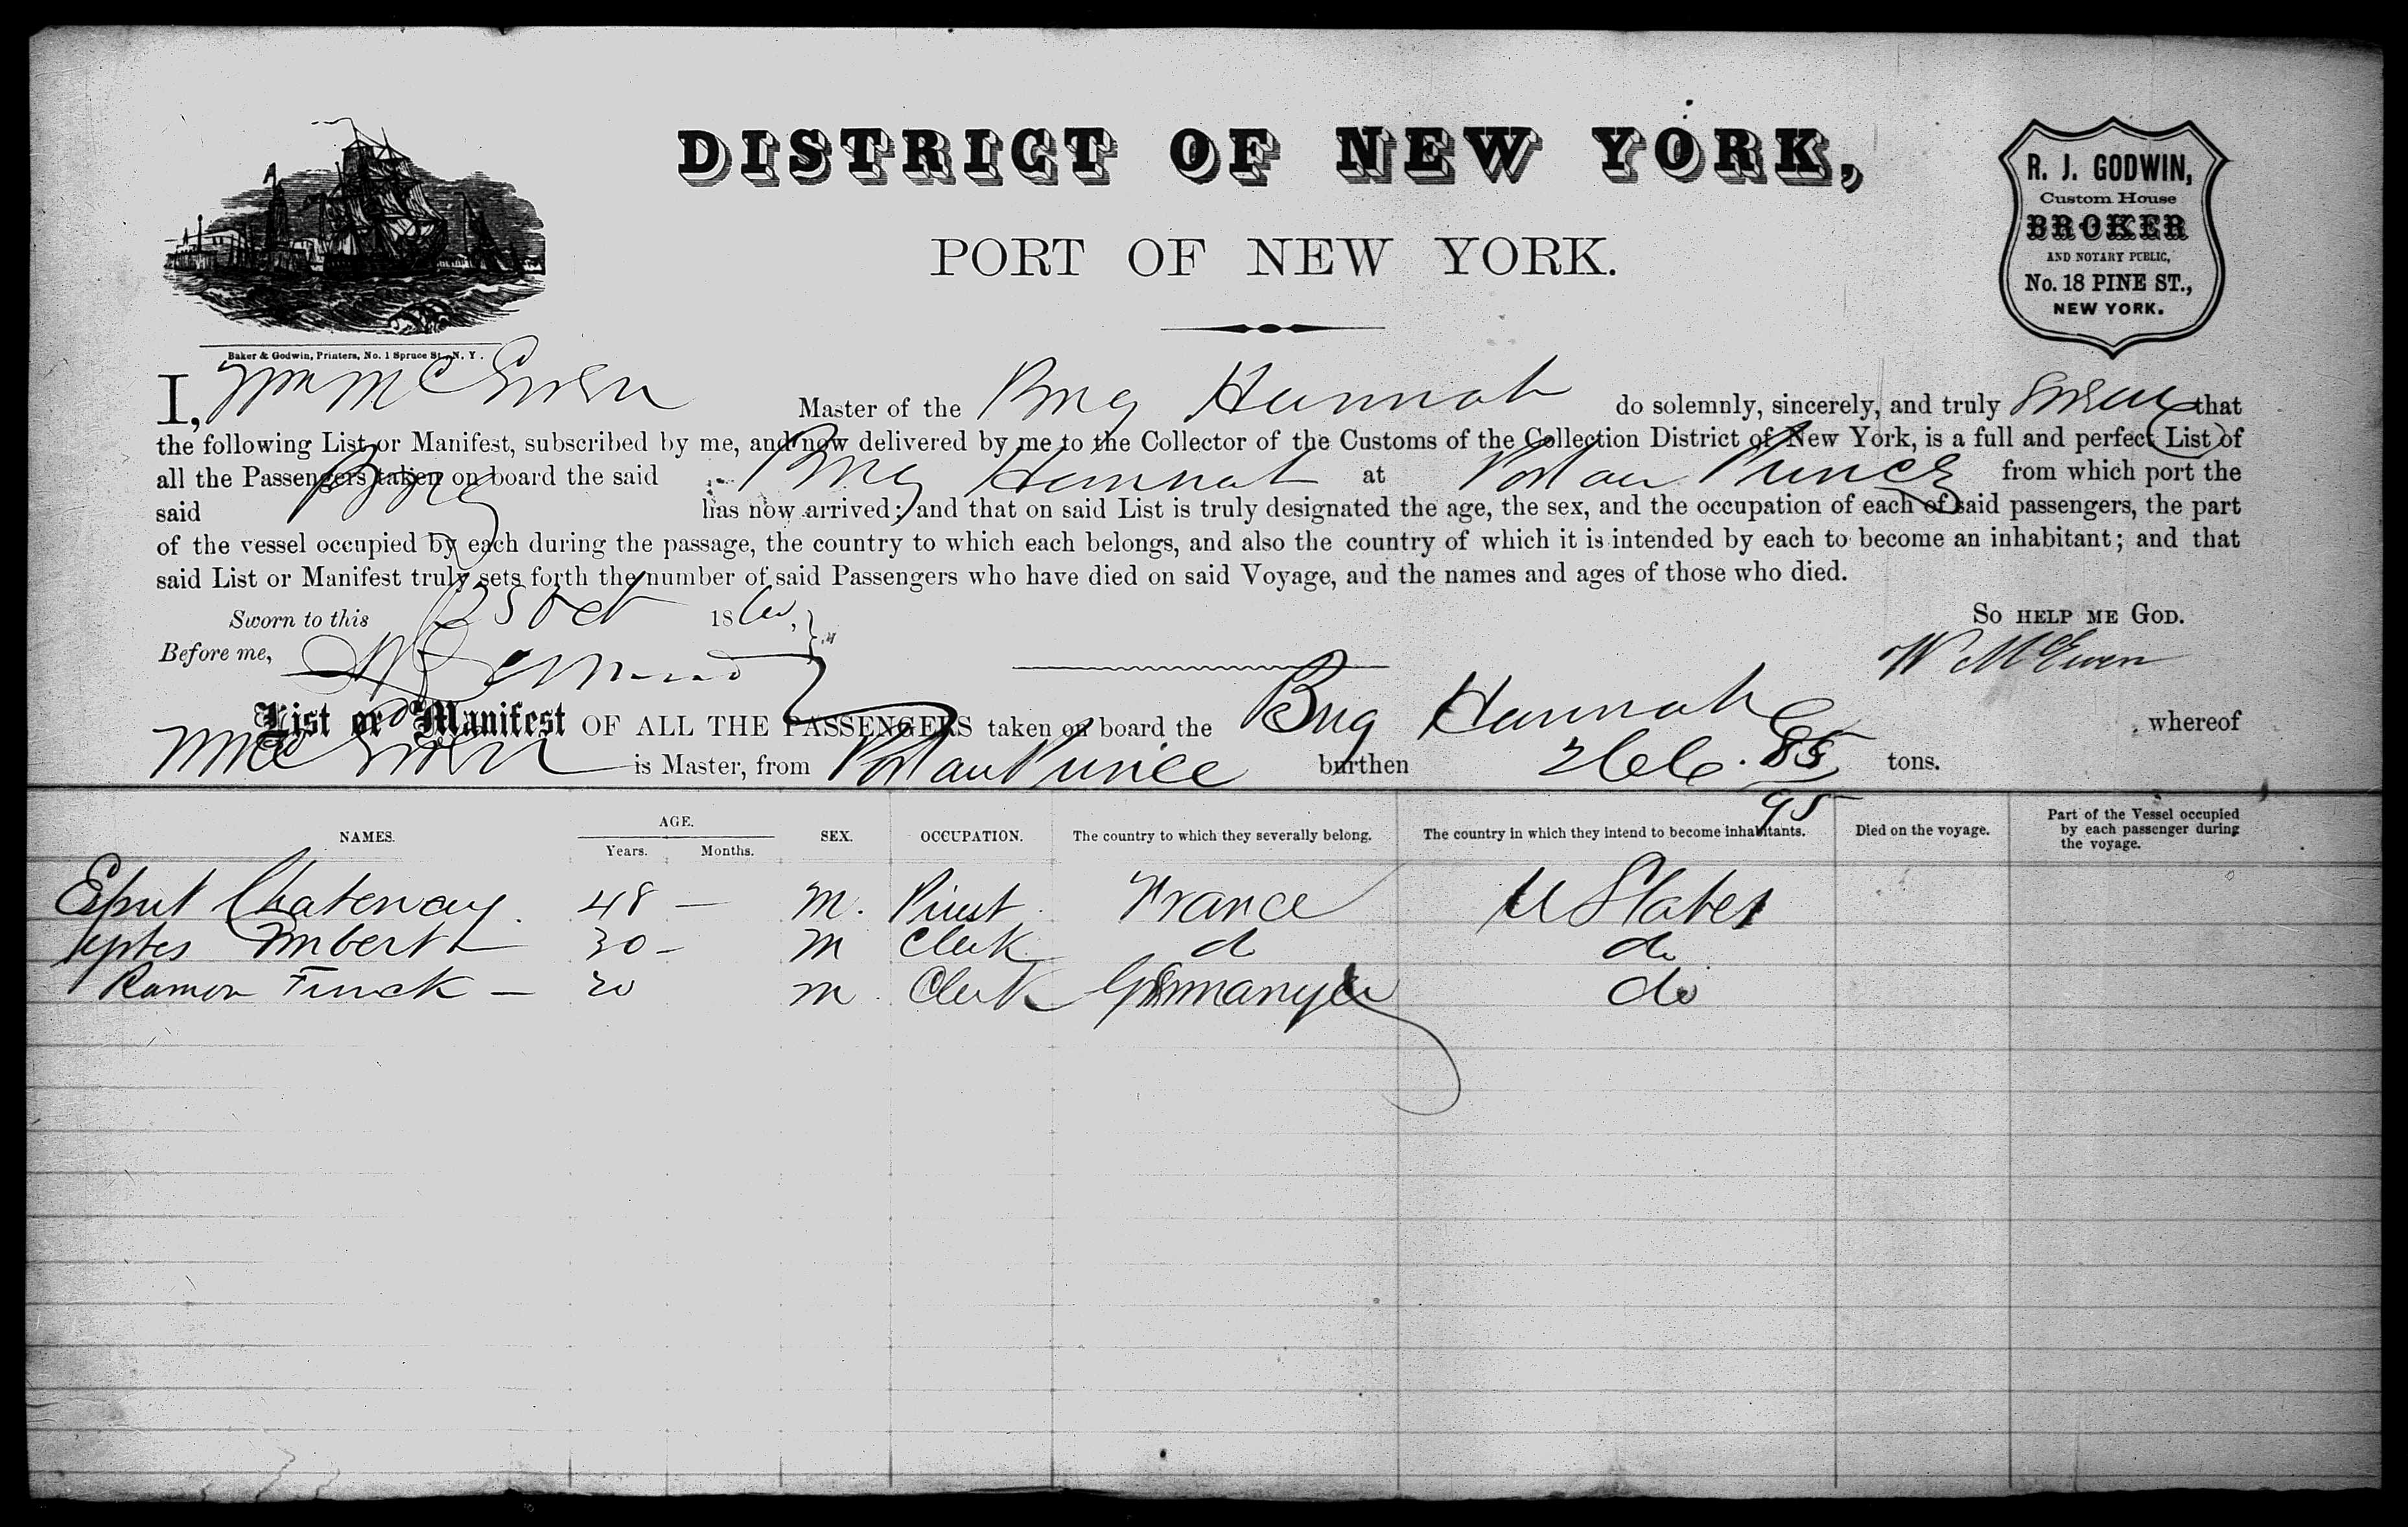 DISTRICT OF NEW YORK,
PORT OF NEW YORK.
R. J. GODWIN,
Custom House
BROKER
AND NOTARY PUBLIC,
No. 18 PINE ST.,
NEW YORK.
Baker & Godwin, Printers, No. 1 Spruce St., N. Y.
I, Wm McEwen Master of the Brig Hannah do solemnly, sincerely, and truly swear that
the following List or Manifest, subscribed by me, and now delivered by me to the Collector of the Customs of the Collection District of New York, is a full and perfect List of
all the Passengers taken on board the said Brig Hannah at Port au Prince from which port the
said Brig has now arrived; and that on said List is truly designated the age, the sex, and the occupation of each of said passengers, the part
of the vessel occupied by each during the passage, the country to which each belongs, and also the country of which it is intended by each to become an inhabitant; and that
said List or Manifest truly sets forth the number of said Passengers who have died on said Voyage, and the names and ages of those who died.
Sworn to this 25 Oct 1860, So HELP ME GOD.
Before me, W McEwen
List or Manifest OF ALL THE PASSENGERS taken on board the Brig Hannah whereof
Wm McEwen is Master, from Port au Prince burthen 266. 85/95 tons.
NAMES. AGE. SEX. OCCUPATION. The country to which they severally belong. The country in which they intend to become inhabitants. Died on the voyage. Part of the Vessel occupied by each passenger during the voyage.
Years. Months.
48 — M. Priest France U States
Imbert 30 — M Clerk d do
Ramon Finck — 20 M Clerk Germany do